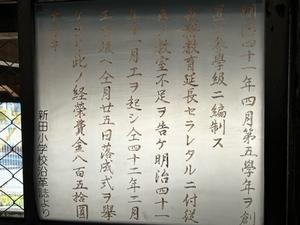 明治四十一年四月第五學年ヲ創
置シ叁學級ニ編制ス
義務教育延長セラレタルニ付従
教室不足ヲ告ケ明治四十一
年十一月工ヲ起シ仝四十二年二月
工ヲ竣ヘ仝月廿五日落成式ヲ擧
此ノ経営費金八百五拾圓
新田小学校沿革誌より